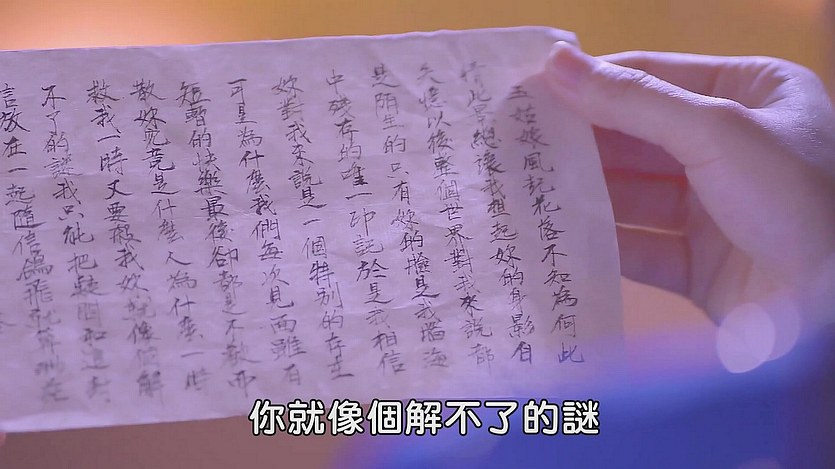 姑娘風起花落不知為何此
情此景總讓我想起妳的身影自
失憶以後整個世界對我來說都
是陌生的只有妳的臉是我腦海
中殘存的唯一印記於是我相信
妳對我來說是一個特別的存在
可是為什麼我們每次見面雖有
短暫的快樂最後卻都是不歡而
散妳究竟是什麼人為什麼一時
救我一時又要殺我妳就像個解
不了的謎我只能把疑問和這封
信放在一起隨信鴿飛
你就像個解不了的謎